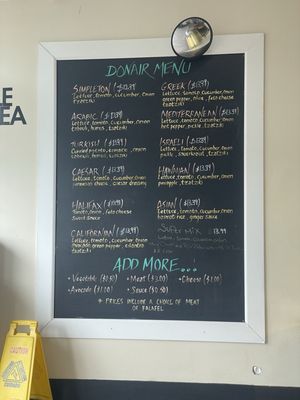 LE
EA
DONAIR MENU
SIMPLETON ($13.99)
Lettuce, tomato, cucumber, onion
tzatziki
ARABIC ($13.99)
Lettuce, tomato, cucumber, onion
tzatziki
TURKISH ($13.99)
tomato, onion
tzatziki
CAESAR ($13.99)
Lettuce, tomato, cucumber, onion
parmesan cheese, caesar dressing
HALIFAX
Tomato, onion, feta cheese
sweet sauce
CALIFORNIAN
Lettuce, tomato, cucumber, onion
avocado, green pepper
tzatziki
GREEK ($13.99)
Lettuce, tomato, cucumber, onion
green pepper, olive, feta cheese
tzatziki
MEDITERRANEAN ($13.99)
Lettuce, tomato, cucumber, onion
hot pepper, pickle, tzatziki
ISRAELI ($13.99)
Lettuce, tomato, cucumber, onion
tzatziki
HAWAIIAN ($13.99)
Lettuce, tomato, cucumber, onion
pineapple, tzatziki
ASIAN ($13.99)
Lettuce, tomato, cucumber, onion
ginger sauce
SUPER MIX
ADD MORE...
• Vegetable ($0.50) • Meat ($3.00) • Cheese ($1.00)
• Avocado ($1.00) • Sauce ($0.50)
* PRICES INCLUDE A CHOICE OF MEAT
OF FALAFEL
CAUTION